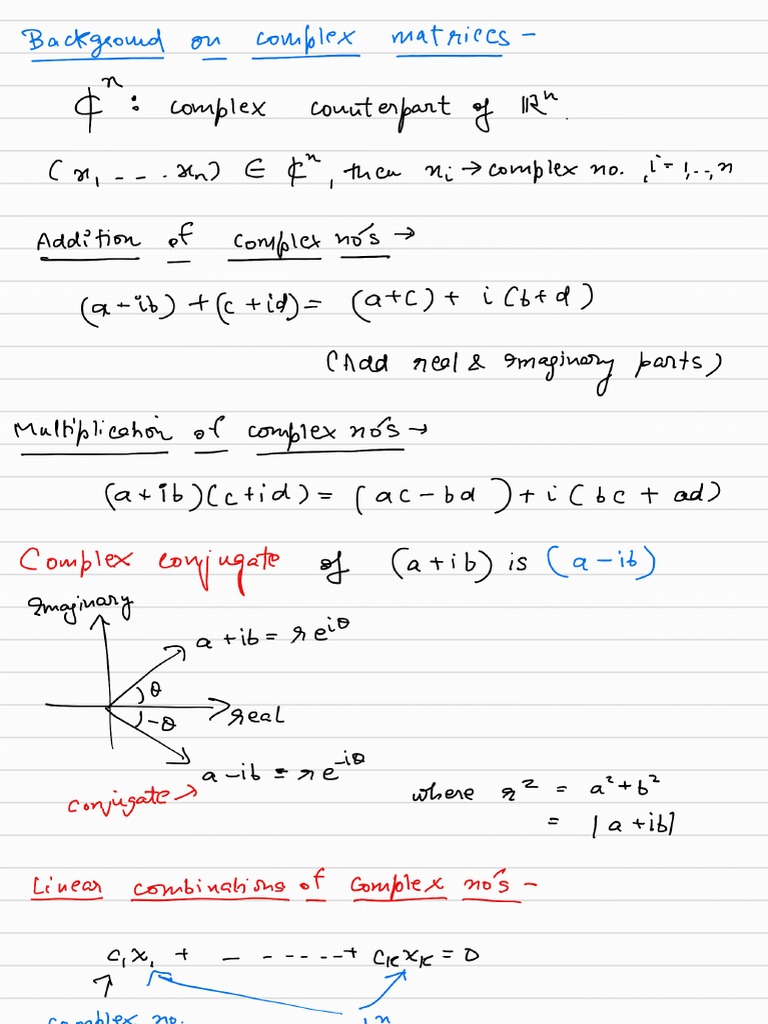 Background on complex matrices -
ℂⁿ : complex counterpart of ℝⁿ.
(x₁ - - . xₙ) ∈ ℂⁿ, then xᵢ → complex no. , i = 1,..,n
Addition of complex no's →
(a - ib) + (c + id) = (a+c) + i (b+d)
(Add real & imaginary parts)
Multiplication of complex no's →
(a + ib)(c+id) = (ac - bd) + i (bc + ad)
Complex conjugate of (a+ib) is (a - ib)
Imaginary
a + ib = r e^{iθ}
θ
real
-θ
a - ib = r e^{-iθ}
conjugate →
where r² = a² + b²
= |a + ib|
Linear combinations of complex no's -
c₁x₁ + - - - - - - + cₖxₖ = 0
complex no.